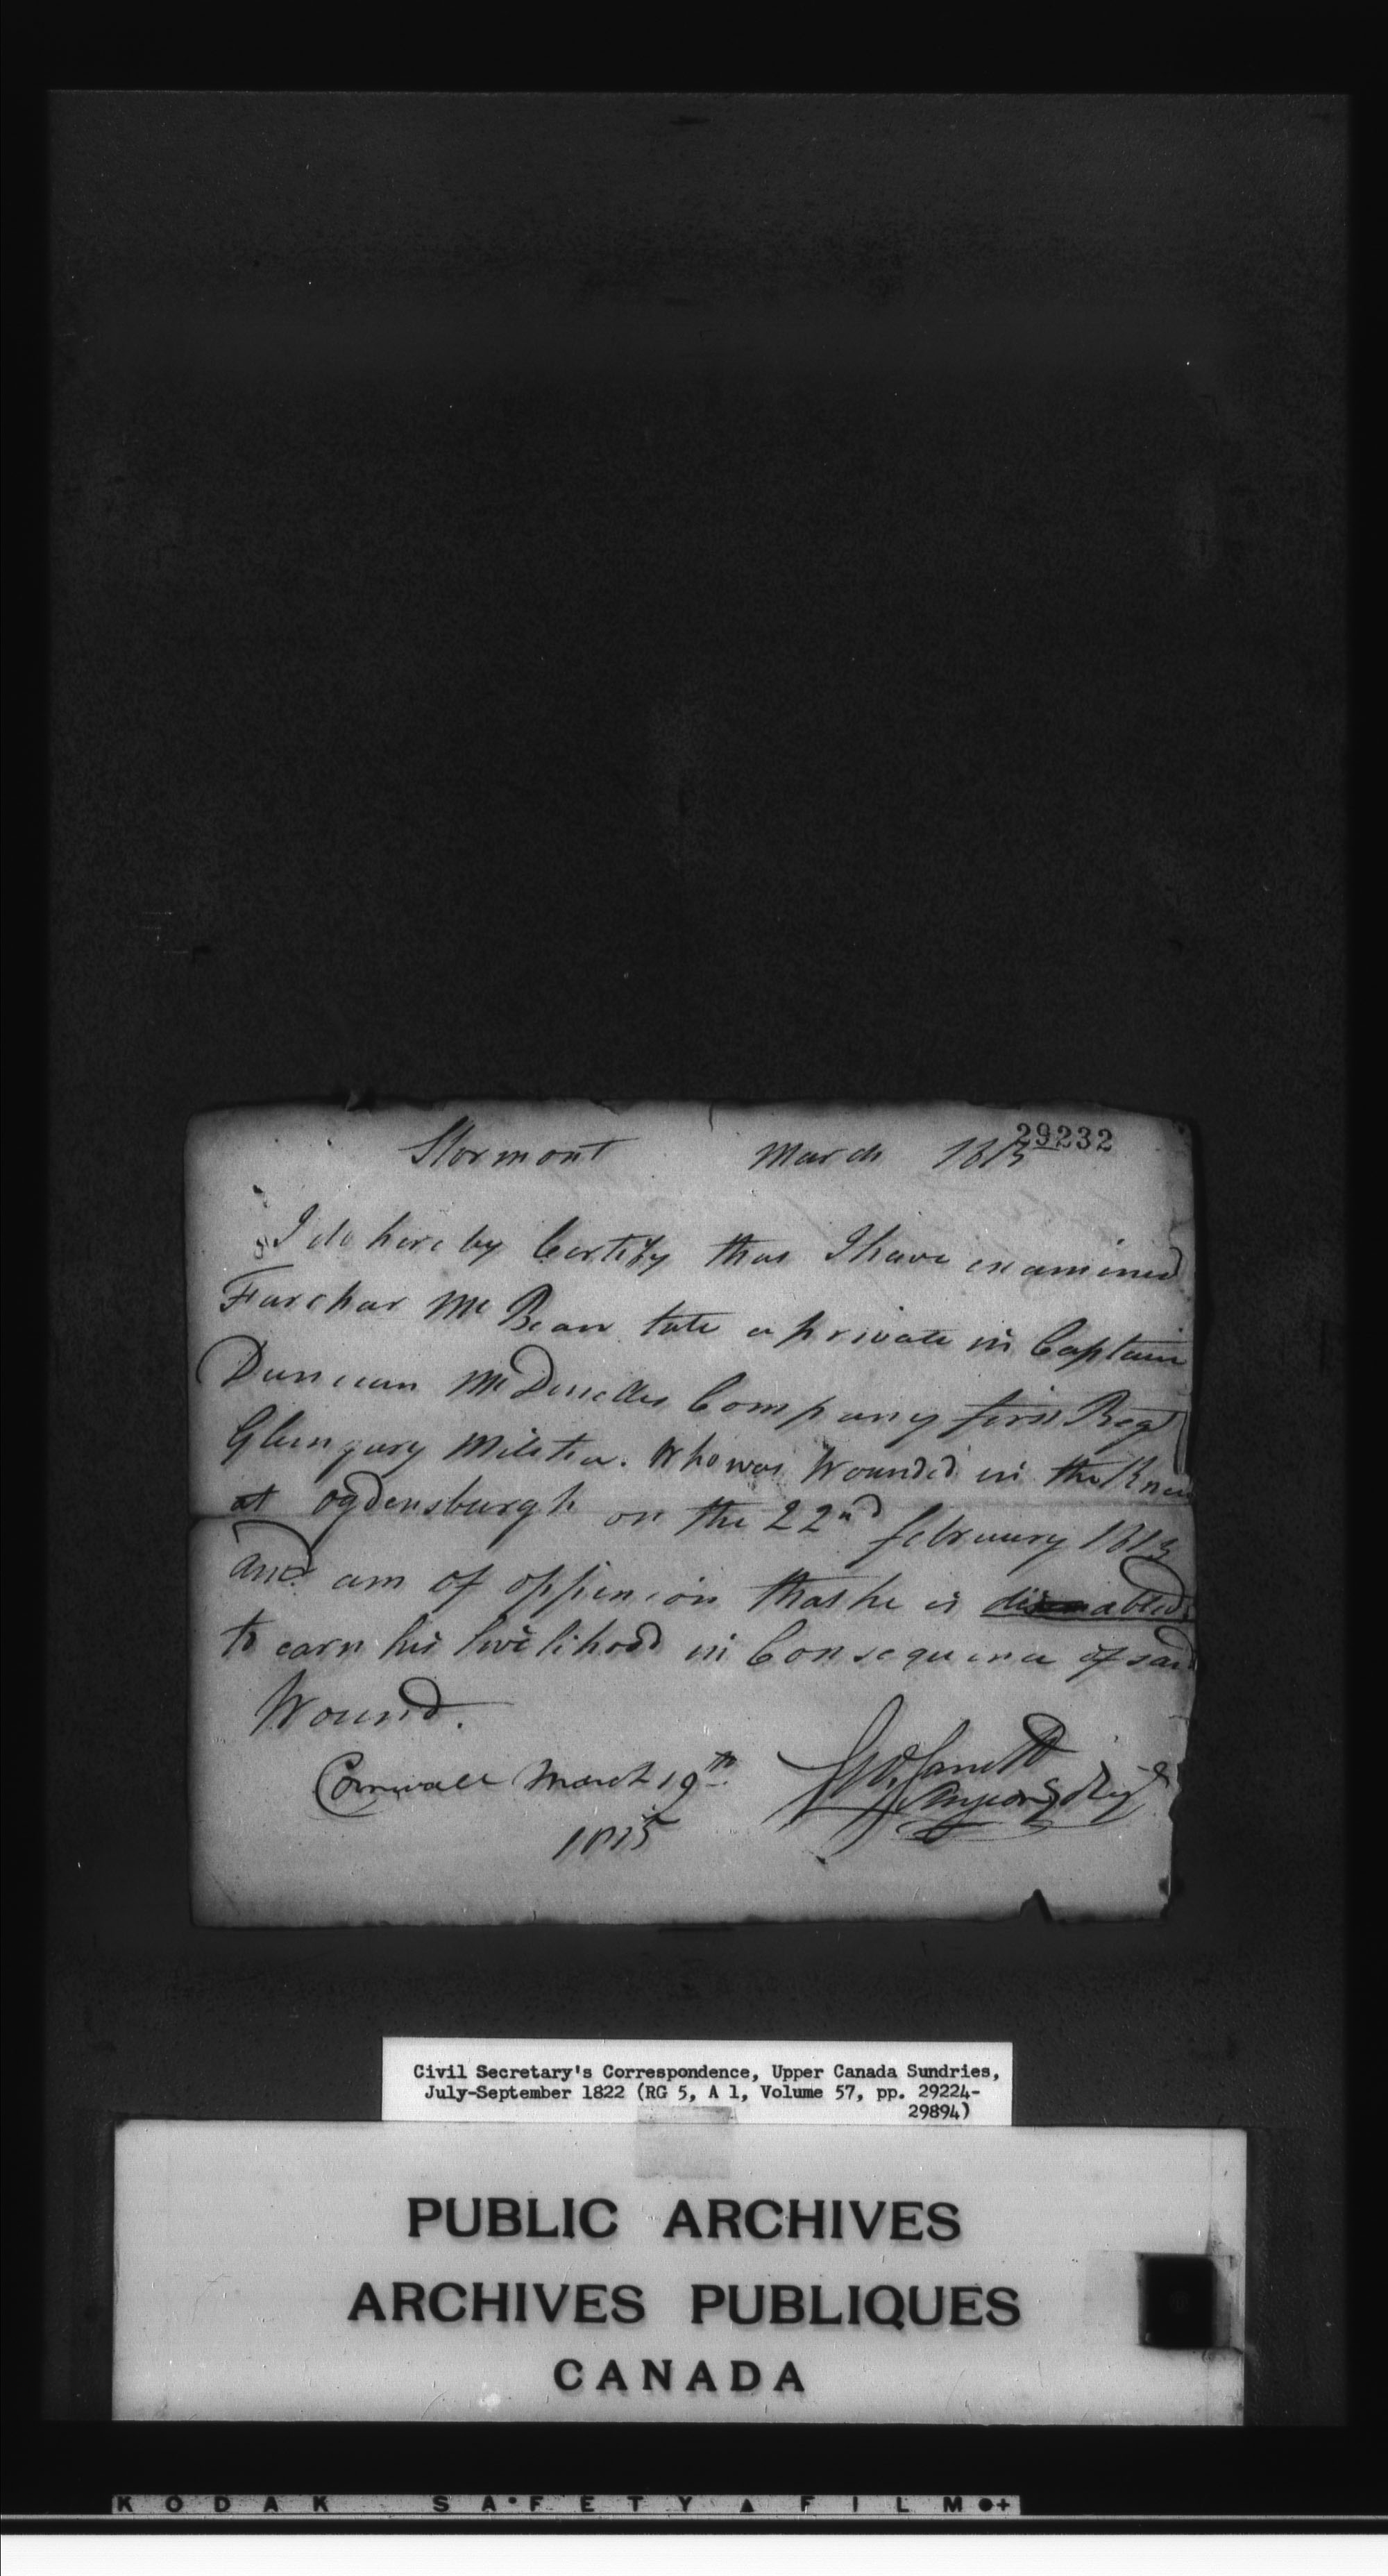 29232
Stormont March 1815
I do here by Certify that I have examined
Farchar Mc Bean late a private in Captain
Duncan Mc Donells Company first Regt
Glengary Militia. Who was Wounded in the Knee
at ogdensburgh on the 22nd february 1813
And am of oppinion that he is disabled
to earn his livelihood in Consequence of said
Wound.
Cornwall March 19th
1815
Surgeon
Civil Secretary's Correspondence, Upper Canada Sundries,
July-September 1822 (RG 5, A 1, Volume 57, pp. 29224-
29894)
PUBLIC ARCHIVES
ARCHIVES PUBLIQUES
CANADA
KODAK SAFETY FILM